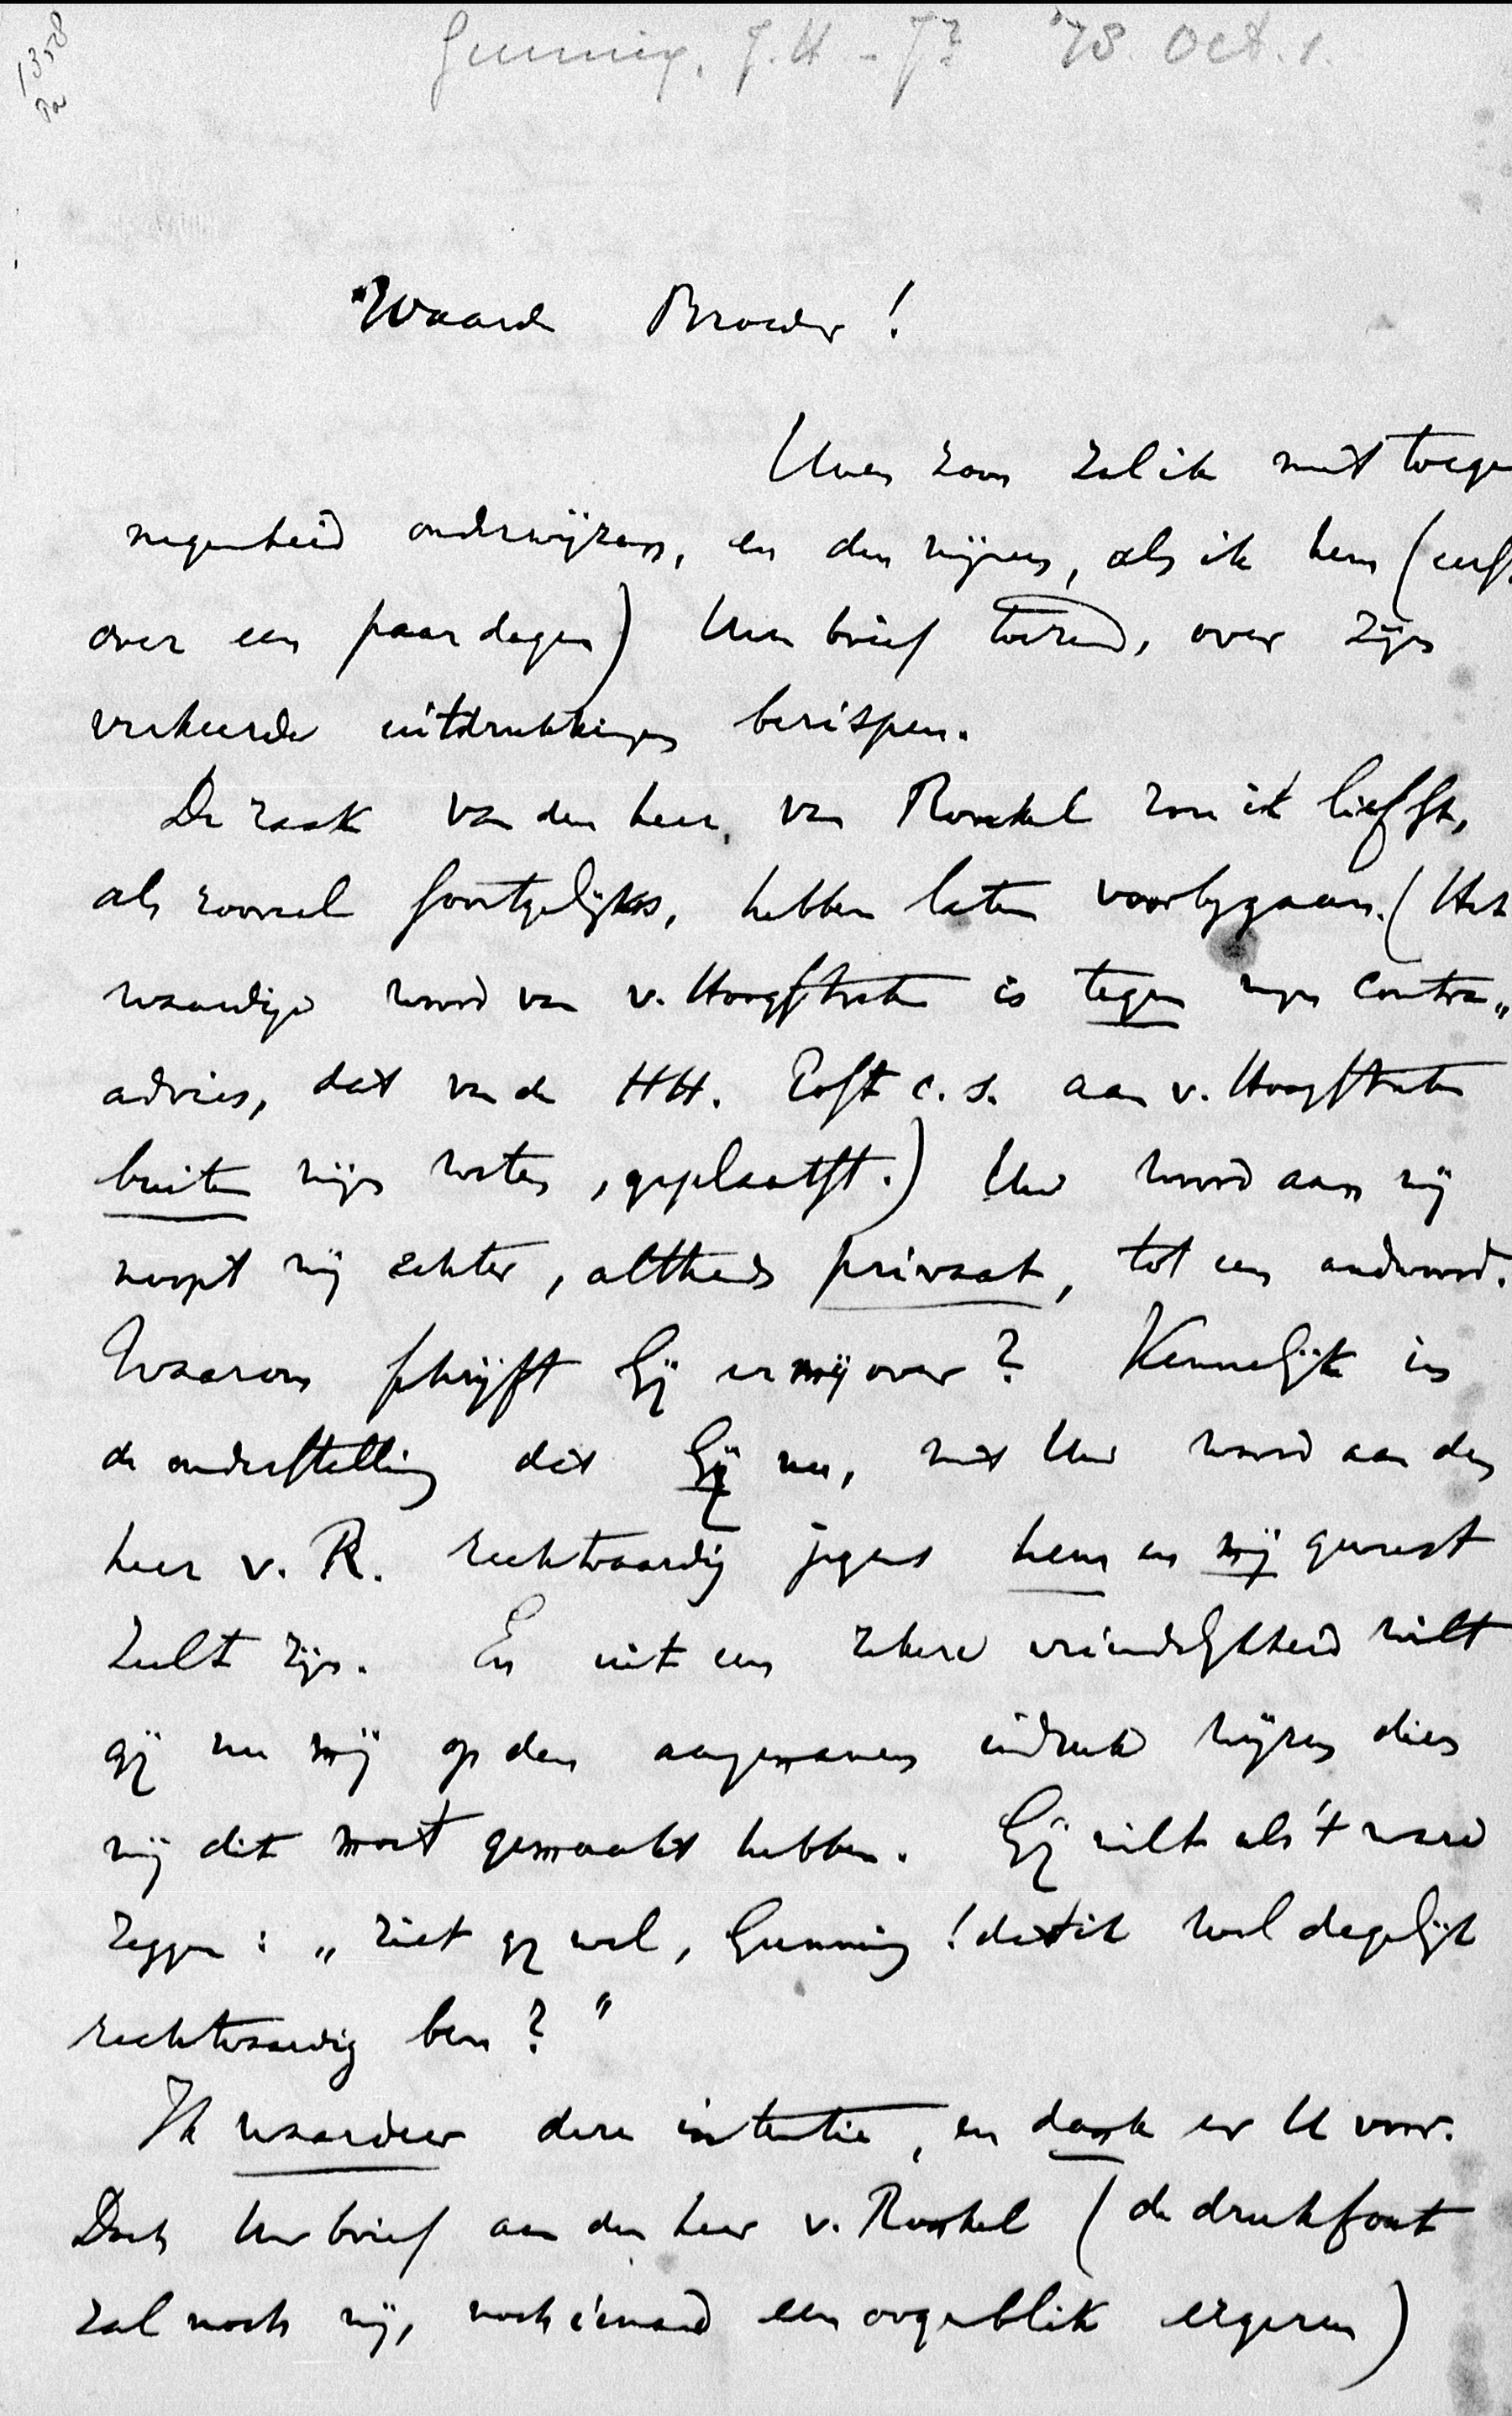 1358
Gunning, J.H - Jz '78. Oct. 1.
Waarde Broeder!
Uwen zoon zal ik met toege
negenheid onderwijzen, en den mijnen, als ik hem (eerst
over een paar dagen) Uwen brief toezend, over zijn
verkeerde uitdrukkingen berispen.
De zaak van den heer van Ronkel zou ik liefst,
als zooveel soortgelijks, hebben laten voorbijgaan. (Het
waardige woord van v. Hoogstraten is tegen mijn contra„
advies, dat van de HH. Post c.s. aan v. Hoogstraten
buiten mijn weten, geplaatst.) Uw woord aan mij
noopt mij echter, althans privaat, tot een andwoord.
Waarom schrijft Gij er mij over? Kennelijk in
de onderstelling dat Gij nu, met Uw woord aan den
heer v. R. rechtvaardig jegens hem en mij geweest
zult zijn. En uit een zekere vriendelijkheid wilt
gij nu mij op den aangenamen indruk wijzen dien
mij dit moet gemaakt hebben. Gij wilt als 't ware
zeggen: „ziet gij wel, Gunning! dat ik wel degelijk
rechtvaardig ben?"
Ik waardeer deze intentie, en dank er U voor.
Doch Uw brief aan den heer v. Ronkel (de drukfout
zal noch mij, noch iemand een oogenblik ergeren)